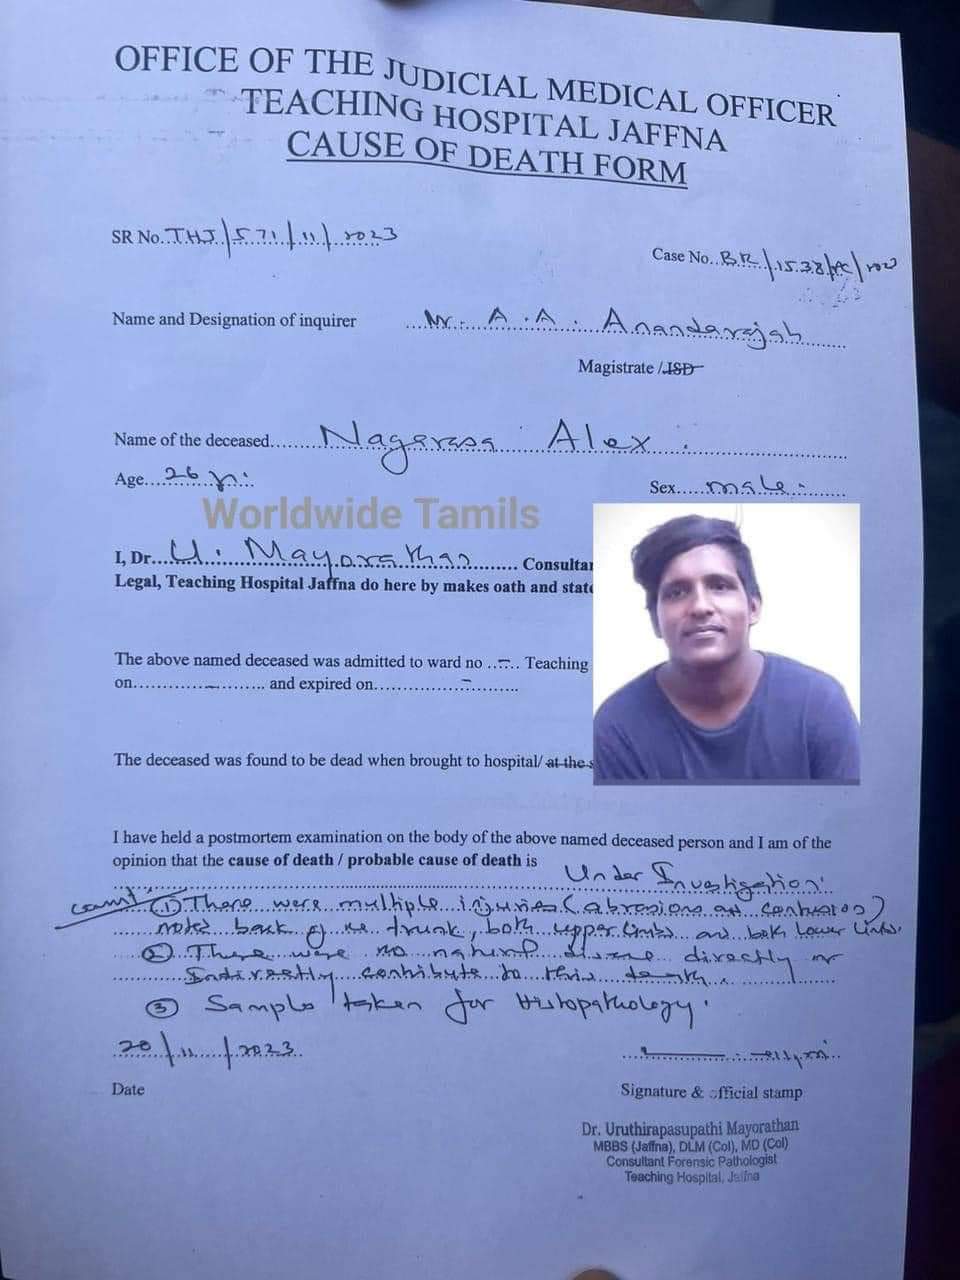 OFFICE OF THE JUDICIAL MEDICAL OFFICER
TEACHING HOSPITAL JAFFNA
CAUSE OF DEATH FORM
SR No..THJ/571/11/2023
Case No..BR/1538/PC/2023
Name and Designation of inquirer ....Mr. A.A. Anandarajah
Magistrate /JSD
Name of the deceased.......Nagarasa Alex.
Age...26 yrs.
Sex.....male.
Worldwide Tamils
I, Dr...U. Mayorathan......... Consulta
Legal, Teaching Hospital Jaffna do here by makes oath and state
The above named deceased was admitted to ward no ..-.. Teaching
on..............-......... and expired on...............-.........
The deceased was found to be dead when brought to hospital/ at the s
I have held a postmortem examination on the body of the above named deceased person and I am of the
opinion that the cause of death / probable cause of death is
Under Investigation.
(1) There were multiple injuries (abrasions and contusions)
noted back of the trunk, both upper limbs and both lower limbs.
(2) There were no natural disease directly or
Indirectly contribute to this death.
(3) Sample taken for Histopathology.
20/11/2023
Date
Signature & official stamp
Dr. Uruthirapasupathi Mayorathan
MBBS (Jaffna), DLM (Col), MD (Col)
Consultant Forensic Pathologist
Teaching Hospital, Jaffna